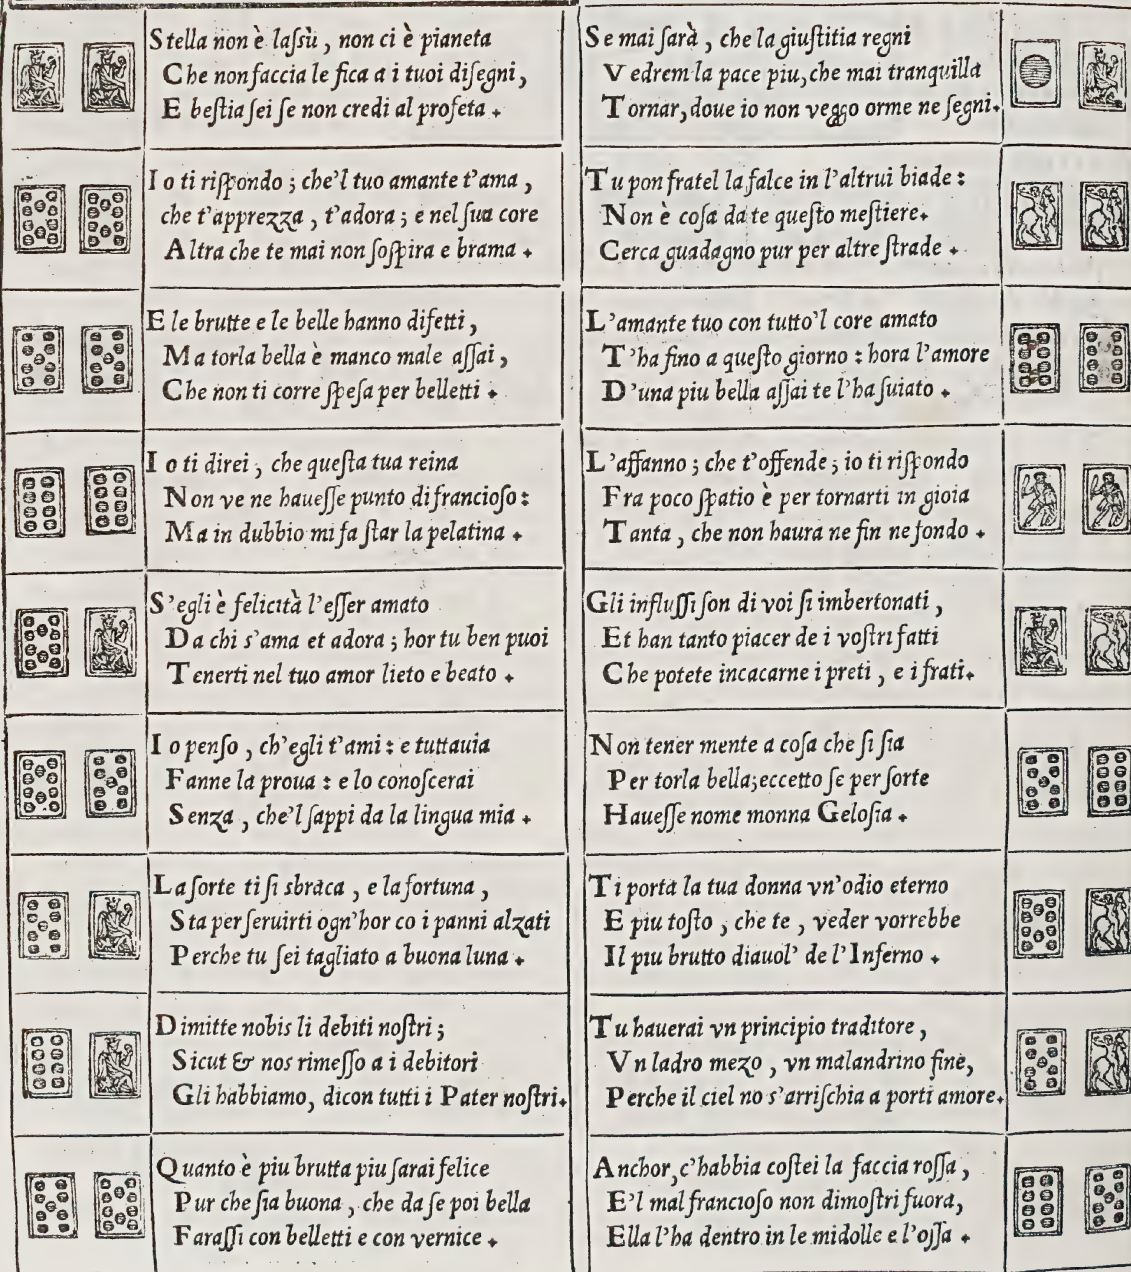 Stella non è laſsù, non ci è pianeta
Che non faccia le fica a i tuoi diſegni,
E beſtia ſei ſe non credi al profeta.
Io ti riſpondo; che'l tuo amante t'ama,
che t'apprezza, t'adora; e nel ſua core
Altra che te mai non ſoſpira e brama.
E le brutte e le belle hanno difetti,
Ma torla bella è manco male aſſai,
Che non ti corre ſpeſa per belletti.
Io ti direi, che queſta tua reina
Non ve ne haueſſe punto di francioſo:
Ma in dubbio mi fa ſtar la pelatina.
S'egli è felicità l'eſſer amato
Da chi s'ama et adora; hor tu ben puoi
Tenerti nel tuo amor lieto e beato.
Io penſo, ch'egli t'ami: e tuttauia
Fanne la proua: e lo conoſcerai
Senza, che'l ſappi da la lingua mia.
La ſorte ti ſi sbraca, e la fortuna,
Sta per ſeruirti ogn'hor co i panni alzati
Perche tu ſei tagliato a buona luna.
Dimitte nobis li debiti noſtri;
Sicut & nos rimeſſo a i debitori
Gli habbiamo, dicon tutti i Pater noſtri.
Quanto è piu brutta piu ſarai felice
Pur che ſia buona, che da ſe poi bella
Faraſſi con belletti e con vernice.
Se mai ſarà, che la giuſtitia regni
Vedrem la pace piu, che mai tranquilla
Tornar, doue io non veggo orme ne ſegni.
Tu pon fratel la falce in l'altrui biade:
Non è coſa da te queſto meſtiere.
Cerca guadagno pur per altre ſtrade.
L'amante tuo con tutto'l core amato
T'ha fino a queſto giorno: hora l'amore
D'una piu bella aſſai te l'ha ſuiato.
L'affanno; che t'offende; io ti riſpondo
Fra poco ſpatio è per tornarti in gioia
Tanta, che non haura ne fin ne fondo.
Gli influſſi ſon di voi ſi imbertonati,
Et han tanto piacer de i voſtri fatti
Che potete incacarne i preti, e i frati.
Non tener mente a coſa che ſi ſia
Per torla bella; eccetto ſe per ſorte
Haueſſe nome monna Geloſia.
Ti porta la tua donna vn'odio eterno
E piu toſto, che te, veder vorrebbe
Il piu brutto diauol' de l'Inferno.
Tu hauerai vn principio traditore,
Vn ladro mezo, vn malandrino fine,
Perche il ciel no s'arriſchia a porti amore.
Anchor, c'habbia coſtei la faccia roſſa,
E'l mal francioſo non dimoſtri fuora,
Ella l'ha dentro in le midolle e l'oſſa.